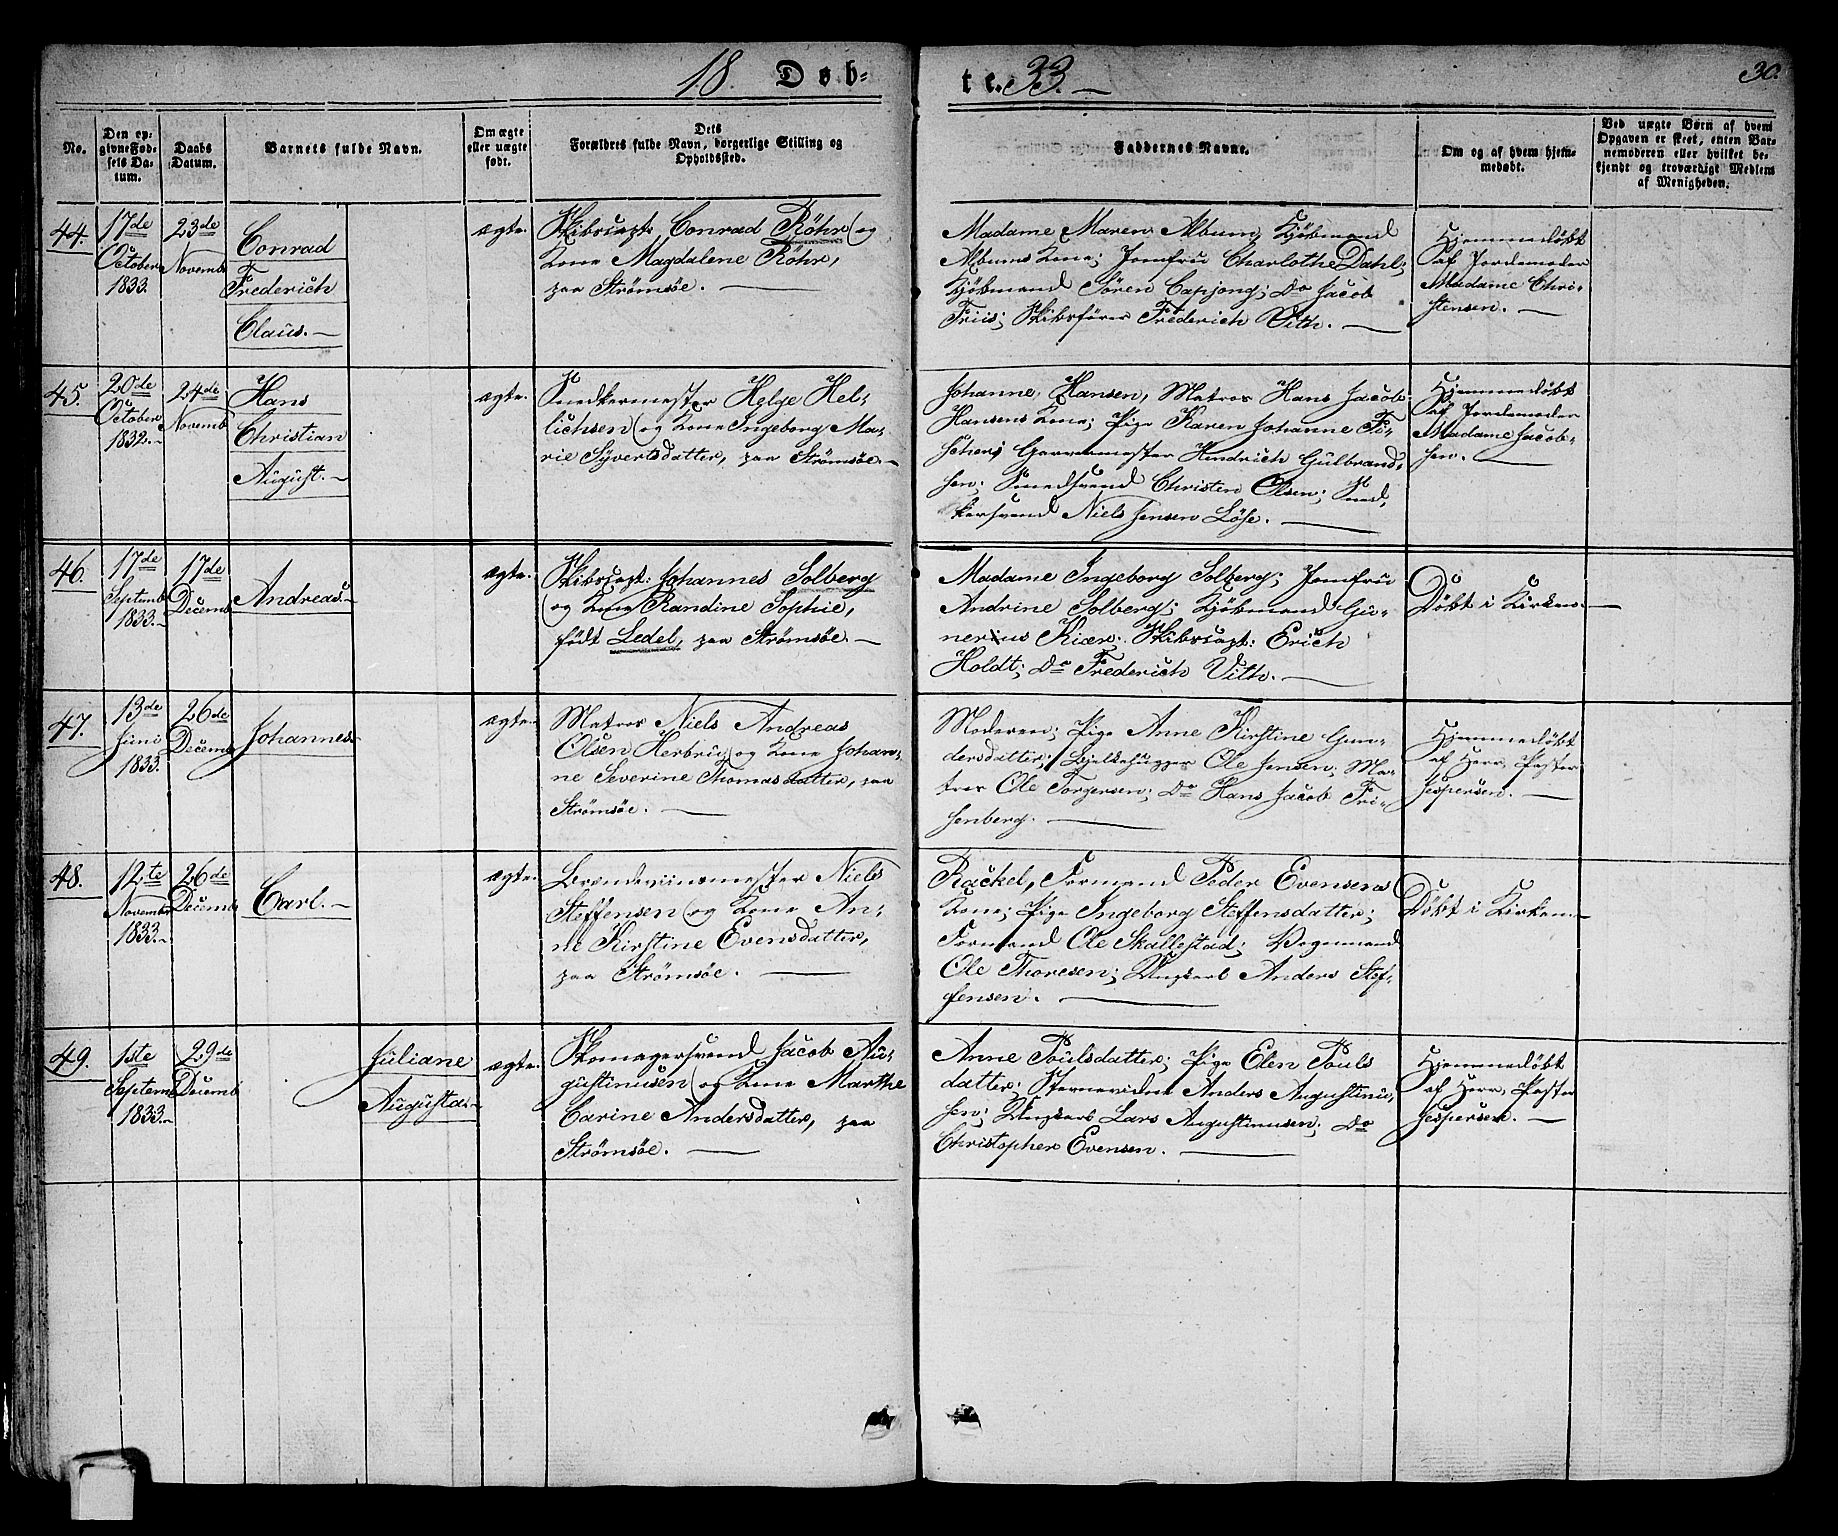 18. Døb-
te. 33.
30.
No.
Den op-
givne Fød-
sels Da-
tum.
Daabs
Datum.
Barnets fulde Navn.
Om ægte
eller uægte
født.
Dets
Forældres fulde Navn, borgerlige Stilling og
Opholdssted.
Faddernes Navne.
Om og af hvem hjem-
medøbt.
Ved uægte Børn af hvem
Opgaven er skeet, enten Bar-
nemoderen eller hvilket be-
kjendt og troværdigt Medlem
af Menigheden.
44.
17de
October
1833.
23de
Novemb
Conrad
Frederich
Claus.
ægte.
Skibscapt: Conrad Röhr og
Kone Magdalene Röhr,
paa Strømsøe.
Madame Maren Album, Kjøbmand
Albums Kone; Jomfru Charlothe Dahl;
Kjøbmand Søren Capjong; Do Jacob
Friis; Skibsfører Frederich Vith.
Hjemmedøbt
af Jordemoder
Madame Chri-
stensen.
45.
20de
October
1832.
24de
Novemb
Hans
Christian
August.
ægte.
Snedkermester Helge Hel-
lichsen og Kone Ingeborg Ma-
rie Syvertsdatter, paa Strømsøe.
Johanne Hansen, Matros Hans Jacob
Hansens Kone; Pige Karen Johanne Fi-
scher; Garvermester Hendrich Gulbrand-
sen; Smedsvend Christen Olsen; Sned
kersvend Niels Jensen Löse.
Hjemmedøbt
af Jordemoder
Madame Jacob-
sen.
46.
17de
Septemb
1833.
17de
Decemb
Andreas.
ægte.
Skibscapt: Johannes Solberg
og Kone Randine Sophie,
født Ledel, paa Strømsøe.
Madame Ingeborg Solberg; Jomfru
Andrine Solberg; Kjøbmand Gu-
nerius Kiær. Skibscapt: Erich
Holdt; Do Frederich Vith.
Døbt i Kirken.
47.
13de
Juni
1833.
26de
Decemb
Johannes
ægte.
Matros Niels Andreas
Olsen Herbrug og Kone Johan-
ne Severine Thomasdatter, paa
Strømsøe.
Moderen; Pige Anne Kirstine Gun-
dersdatter; Bjelkehugger Ole Jensen; Ma-
tros Ole Torgersen; Do Hans Jacob Fri-
senberg.
Hjemmedøbt
af Herr, Pastor
Jespersen.
48.
12te
November
1833.
26de
Decemb
Carl.
ægte.
Brændeviinsmester Niels
Steffensen og Kone An-
ne Kirstine Evensdatter,
paa Strømsøe.
Rackel, Formand Peder Evensens
Kone; Pige Ingeborg Steffensdatter;
Formand Ole Skallestad; Vognmand
Ole Thoresen; Ungkarl Anders Stef-
fensen.
Døbt i Kirken
49.
1ste
Septemb
1833.
29de
Decemb
Juliane
Augusta.
ægte.
Skomagersvend Jacob Au-
gustinusen og Kone Marthe
Carine Andersdatter, paa
Strømsøe.
Anne Poulsdatter; Pige Elen Pouls
datter; Anders Augustinu-
sen; Ungkarl Lars Augustinusen; Do
Christopher Evensen.
Hjemmedøbt
af Herr, Pastor
Jespersen.